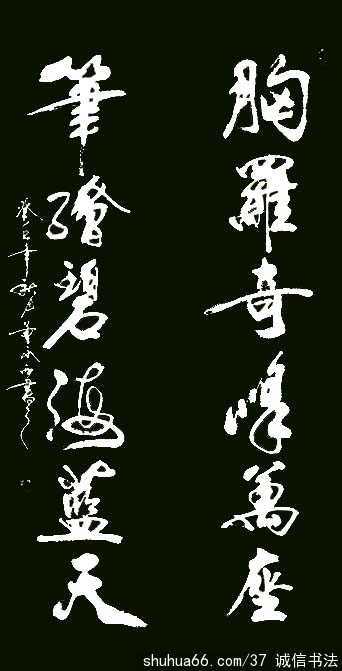 胸羅奇峰萬座
筆繪碧海藍天
shuhua66.com/37 诚信书法